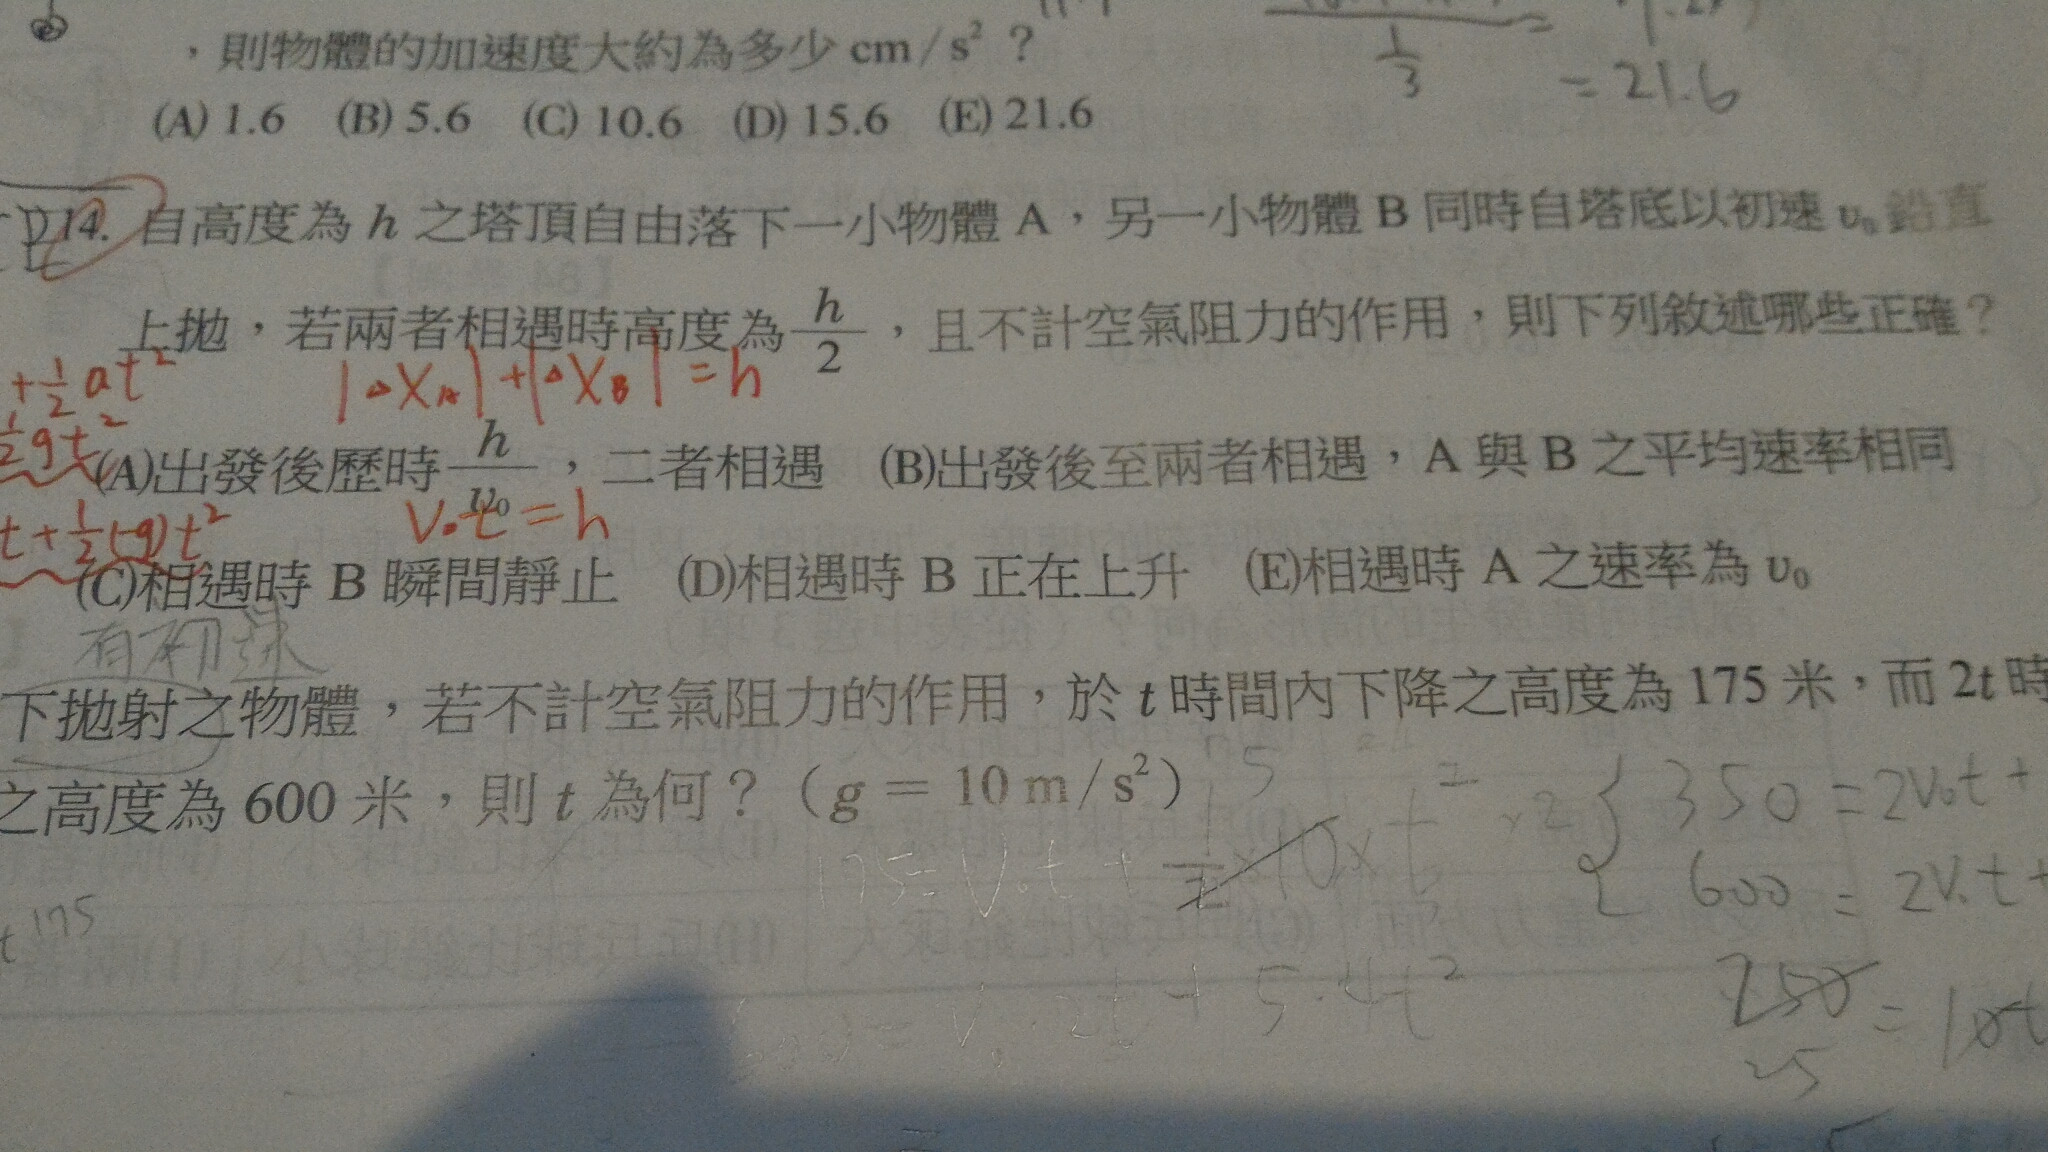 ，則物體的加速度大約為多少 cm/s² ？
(A) 1.6 (B) 5.6 (C) 10.6 (D) 15.6 (E) 21.6
1/3
= 21.6
14. 自高度為 h 之塔頂自由落下一小物體 A，另一小物體 B 同時自塔底以初速 υ₀ 鉛直
上拋，若兩者相遇時高度為 h/2，且不計空氣阻力的作用，則下列敘述哪些正確？
+½at²
|△XA|+|△XB|=h
½gt²
(A)出發後歷時 h/υ₀，二者相遇 (B)出發後至兩者相遇，A 與 B 之平均速率相同
V₀t=h
t+½(-g)t²
(C)相遇時 B 瞬間靜止 (D)相遇時 B 正在上升 (E)相遇時 A 之速率為 υ₀
有初速
下拋射之物體，若不計空氣阻力的作用，於 t 時間內下降之高度為 175 米，而 2t 時
之高度為 600 米，則 t 為何？（g = 10 m/s²）
5
175=V₀t+½×10×t²
×2
350=2V₀t+
600=2V₀t+
t 175
600=V₀·2t+5·4t²
250=10t
25